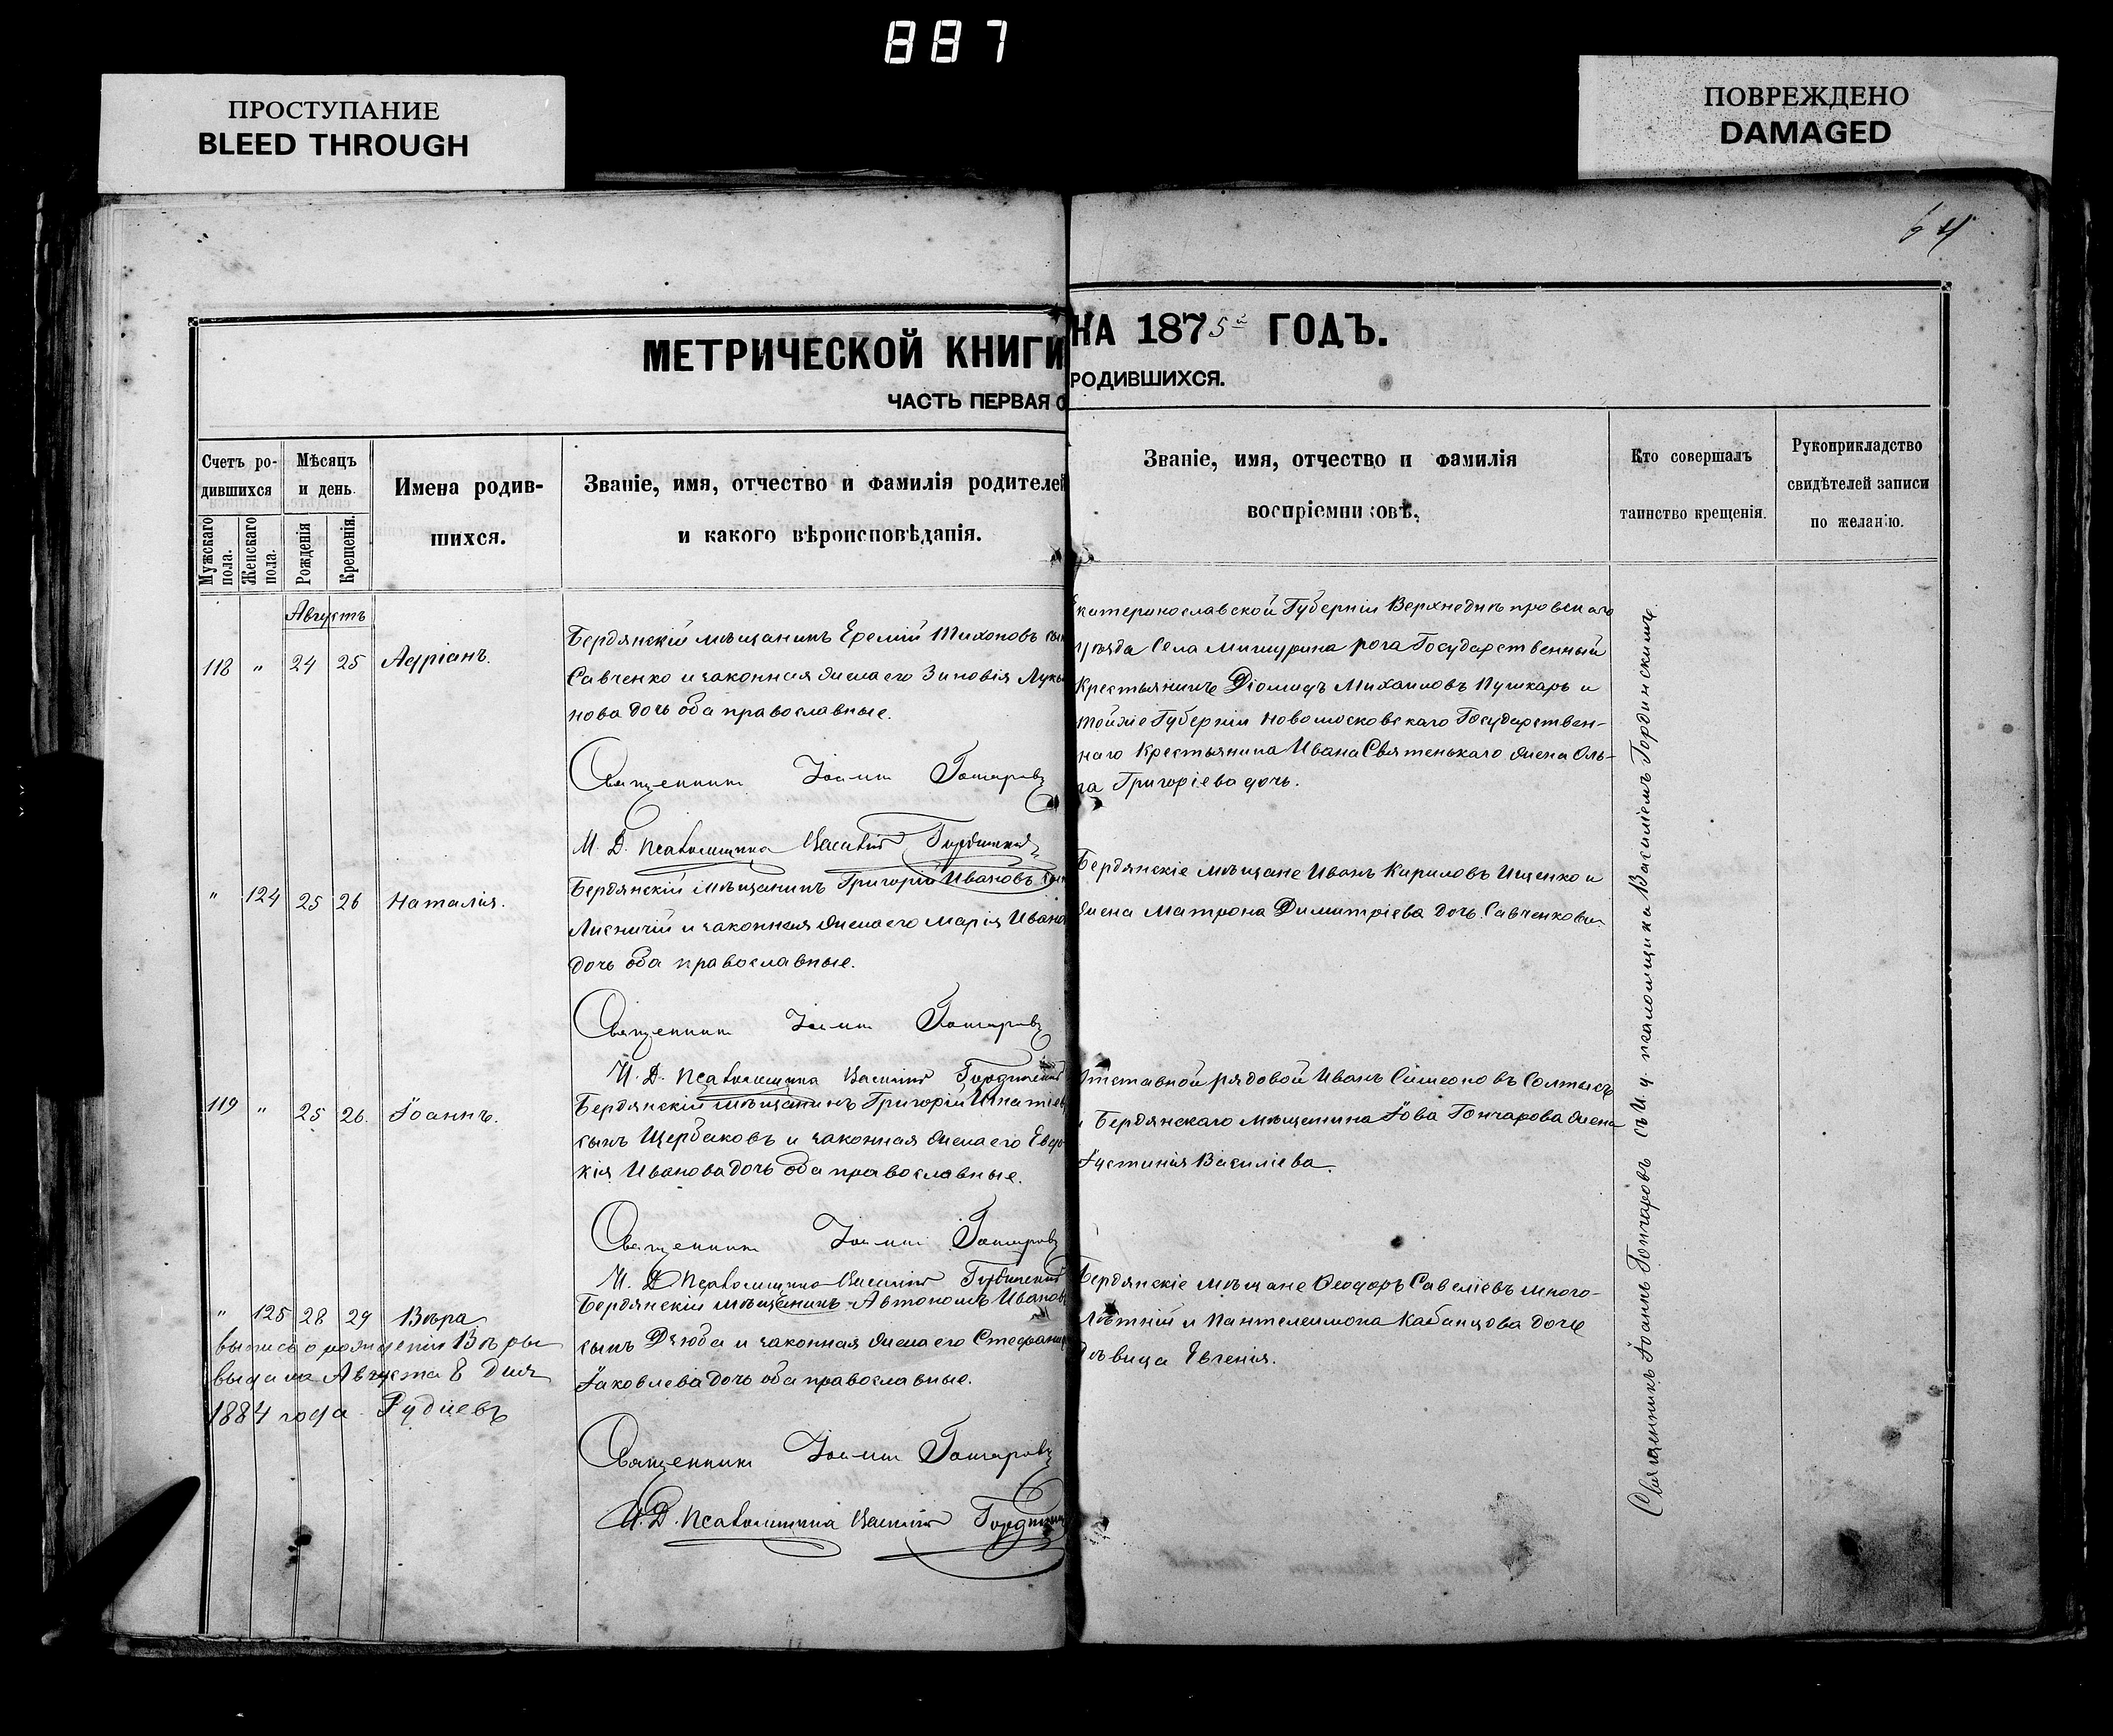 887
ПРОСТУПАНИЕ
BLEED THROUGH
ПОВРЕЖДЕНО
DAMAGED
64
МЕТРИЧЕСКОЙ КНИГИ НА 1875й ГОДЪ.
ЧАСТЬ ПЕРВАЯ О РОДИВШИХСЯ.
Счетъ ро-
дившихся
Мужскаго пола.
Женскаго пола.
Мѣсяцъ
и день.
Рожденія
Крещенія.
Имена родив-
шихся.
Званіе, имя, отчество и фамилія родителей
и какого вѣроисповѣданія.
Званіе, имя, отчество и фамилія
воспріемниковъ.
Кто совершалъ
таинство крещенія.
Рукоприкладство
свидѣтелей записи
по желанію.
Августъ
118 " 24 25 Адріанъ.
Бердянскій мѣщанинъ Еремій Тихоновъ сын
Савченко и законная жена его Зиновія Лукья
нова дочь оба православные.
Священникъ Іоаннъ Гончаровъ
И. Д. Псаломщика Василій Гординскій
катеринославской Губерніи Верхнеднѣпровскаго
уѣзда Села Мишурина рога Государственный
Крестьянинъ Діомидъ Михаиловъ Пушкарь и
тойже Губерніи Новомосковскаго Государствен-
наго Крестьянина Ивана Святенькаго жена Оль-
га Григоріева дочь.
" 124 25 26 Наталія.
Бердянскій мѣщанинъ Григорій Ивановъ сын
Лисничій и законная жена его Марія Ивано
дочь оба православные.
Священникъ Іоаннъ Гончаровъ
И. Д. Псаломщика Василій Гординскій
Бердянскіе мѣщане Иванъ Кириловъ Ищенко и
жена Матрона Димитріева дочь Савченкова
119 " 25 26. Іоаннъ.
Бердянскій мѣщанинъ Григорій Игнатіев
сынъ Щербаковъ и законная жена его Евдо
кія Иванова дочь оба православные.
Священникъ Іоаннъ Гончаровъ
И. Д. Псаломщика Василій Гординскій
Отставной рядовой Иванъ Сімеоновъ Солтысъ
и Бердянскаго мѣщанина Іова Гончарова жена
Іустинія Василіева.
" 125 28 29 Вѣра.
выпись о рожденіи Вѣры
выдана Августа 8 дня
1884 года
Бердянскій мѣщанинъ Автономъ Ивановъ
сынъ Дзюба и законная жена его Стефани
Іаковлева дочь оба православные.
Священникъ Іоаннъ Гончаровъ
И. Д. Псаломщика Василій Гординскій
Бердянскіе мѣщане Ѳеодоръ Савеліевъ Много-
лѣтній и Пантелеимона Кабанцова дочь
дѣвица Евгенія.
Священникъ Іоаннъ Гончаровъ съ И. д. псаломщика Василіемъ Гординскимъ.